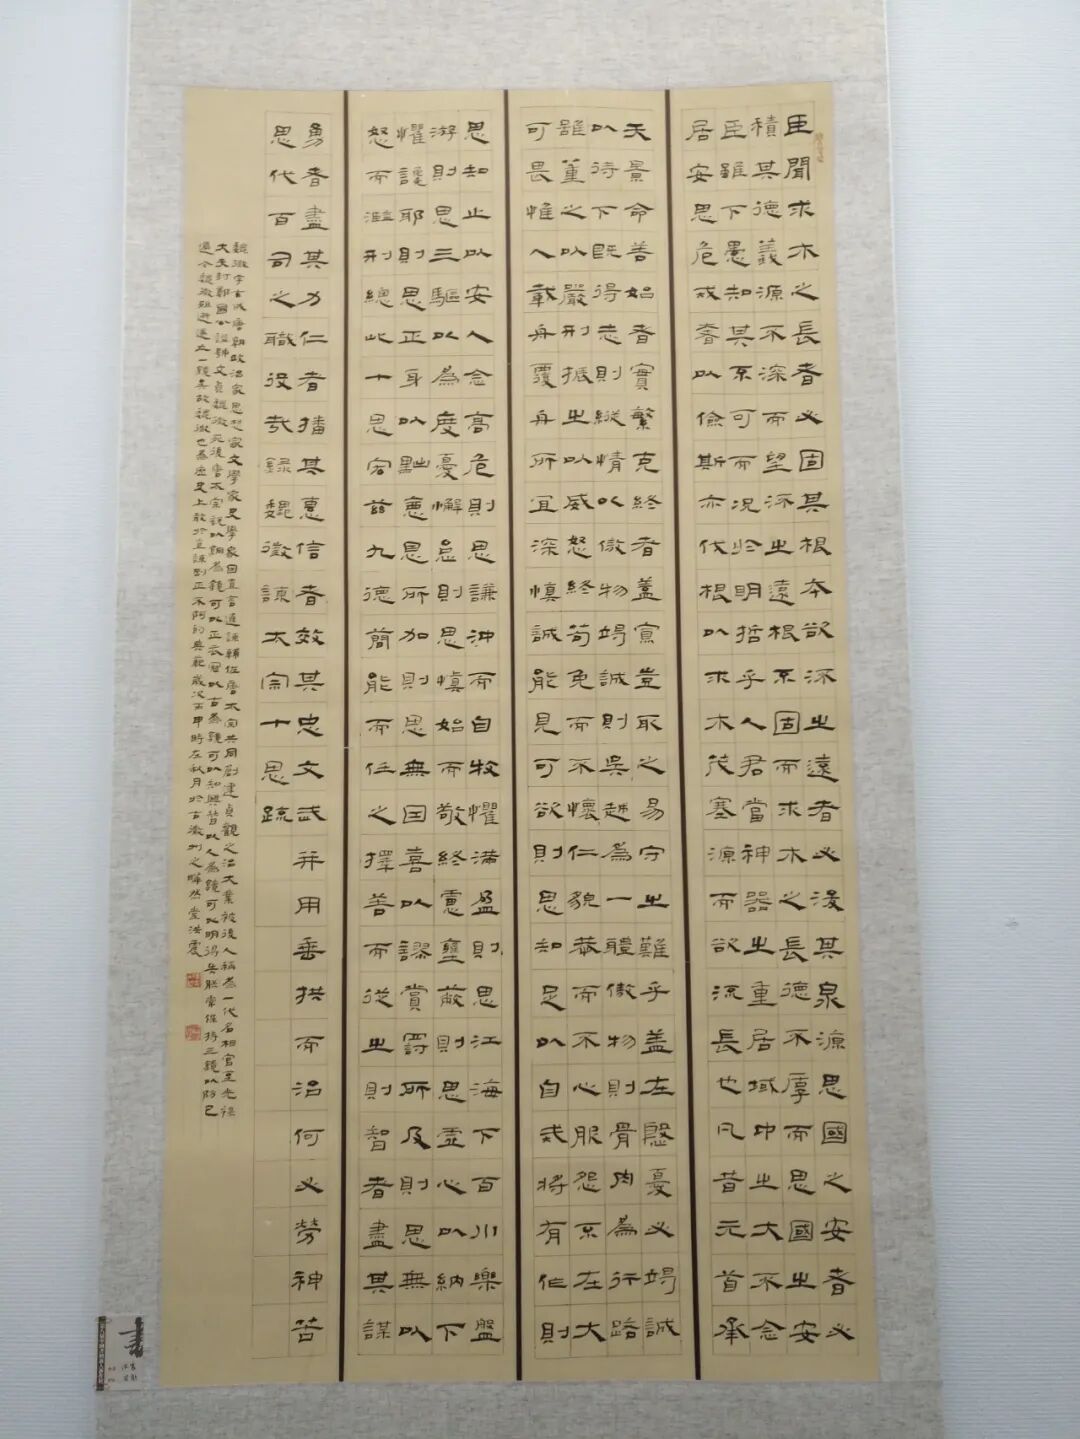 臣聞求木之長者必固其根本欲流之遠者必浚其泉源思國之安者必
積其德義源不深而望流之遠根不固而求木之長德不厚而思國之安
臣雖下愚知其不可而況於明哲乎人君當神器之重居域中之大不念
居安思危戒奢以儉斯亦伐根以求木茂塞源而欲流長也凡昔元首承
天景命善始者實繁克終者蓋寡豈取之易守之難乎蓋在殷憂必竭誠
以待下既得志則縱情以傲物竭誠則吳越為一體傲物則骨肉為行路
雖董之以嚴刑振之以威怒終苟免而不懷仁貌恭而不心服怨不在大
可畏惟人載舟覆舟所宜深慎誠能見可欲則思知足以自戒將有作則
思知止以安人念高危則思謙沖而自牧懼滿盈則思江海下百川樂盤
游則思三驅以為度憂懈怠則思慎始而敬終慮壅蔽則思虛心以納下
懼讒耶則思正身以黜惡恩所加則思無因喜以謬賞罰所及則思無以
怒而濫刑總此十思宏茲九德簡能而任之擇善而從之則智者盡其謀
勇者盡其力仁者播其惠信者效其忠文武并用垂拱而治何必勞神苦
思代百司之職役哉錄魏徵諫太宗十思疏
魏徵字玄成唐朝政治家思想家文學家史學家因直言進諫輔佐唐太宗共同創建貞觀之治大業被後人稱為一代名相官至光祿
大夫封鄭國公諡號文貞魏徵死後唐太宗說以銅為鏡可以正衣冠以古為鏡可以知興替以人為鏡可以明得失朕常保持三鏡以防己
過今魏徵殂逝遂亡一鏡矣故魏徵也為歷史上敢於直諫剛正不阿的典範歲次丙申時在秋月於古徽州之曄然堂洪震
書